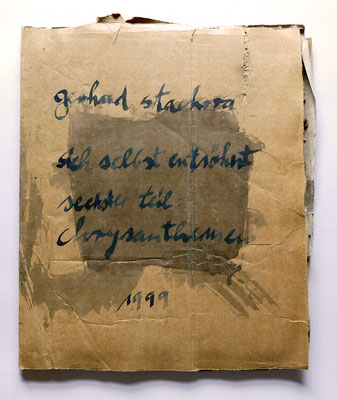 gerhard stachora
sich selbst
sechster teil
chrysanthemen
1999